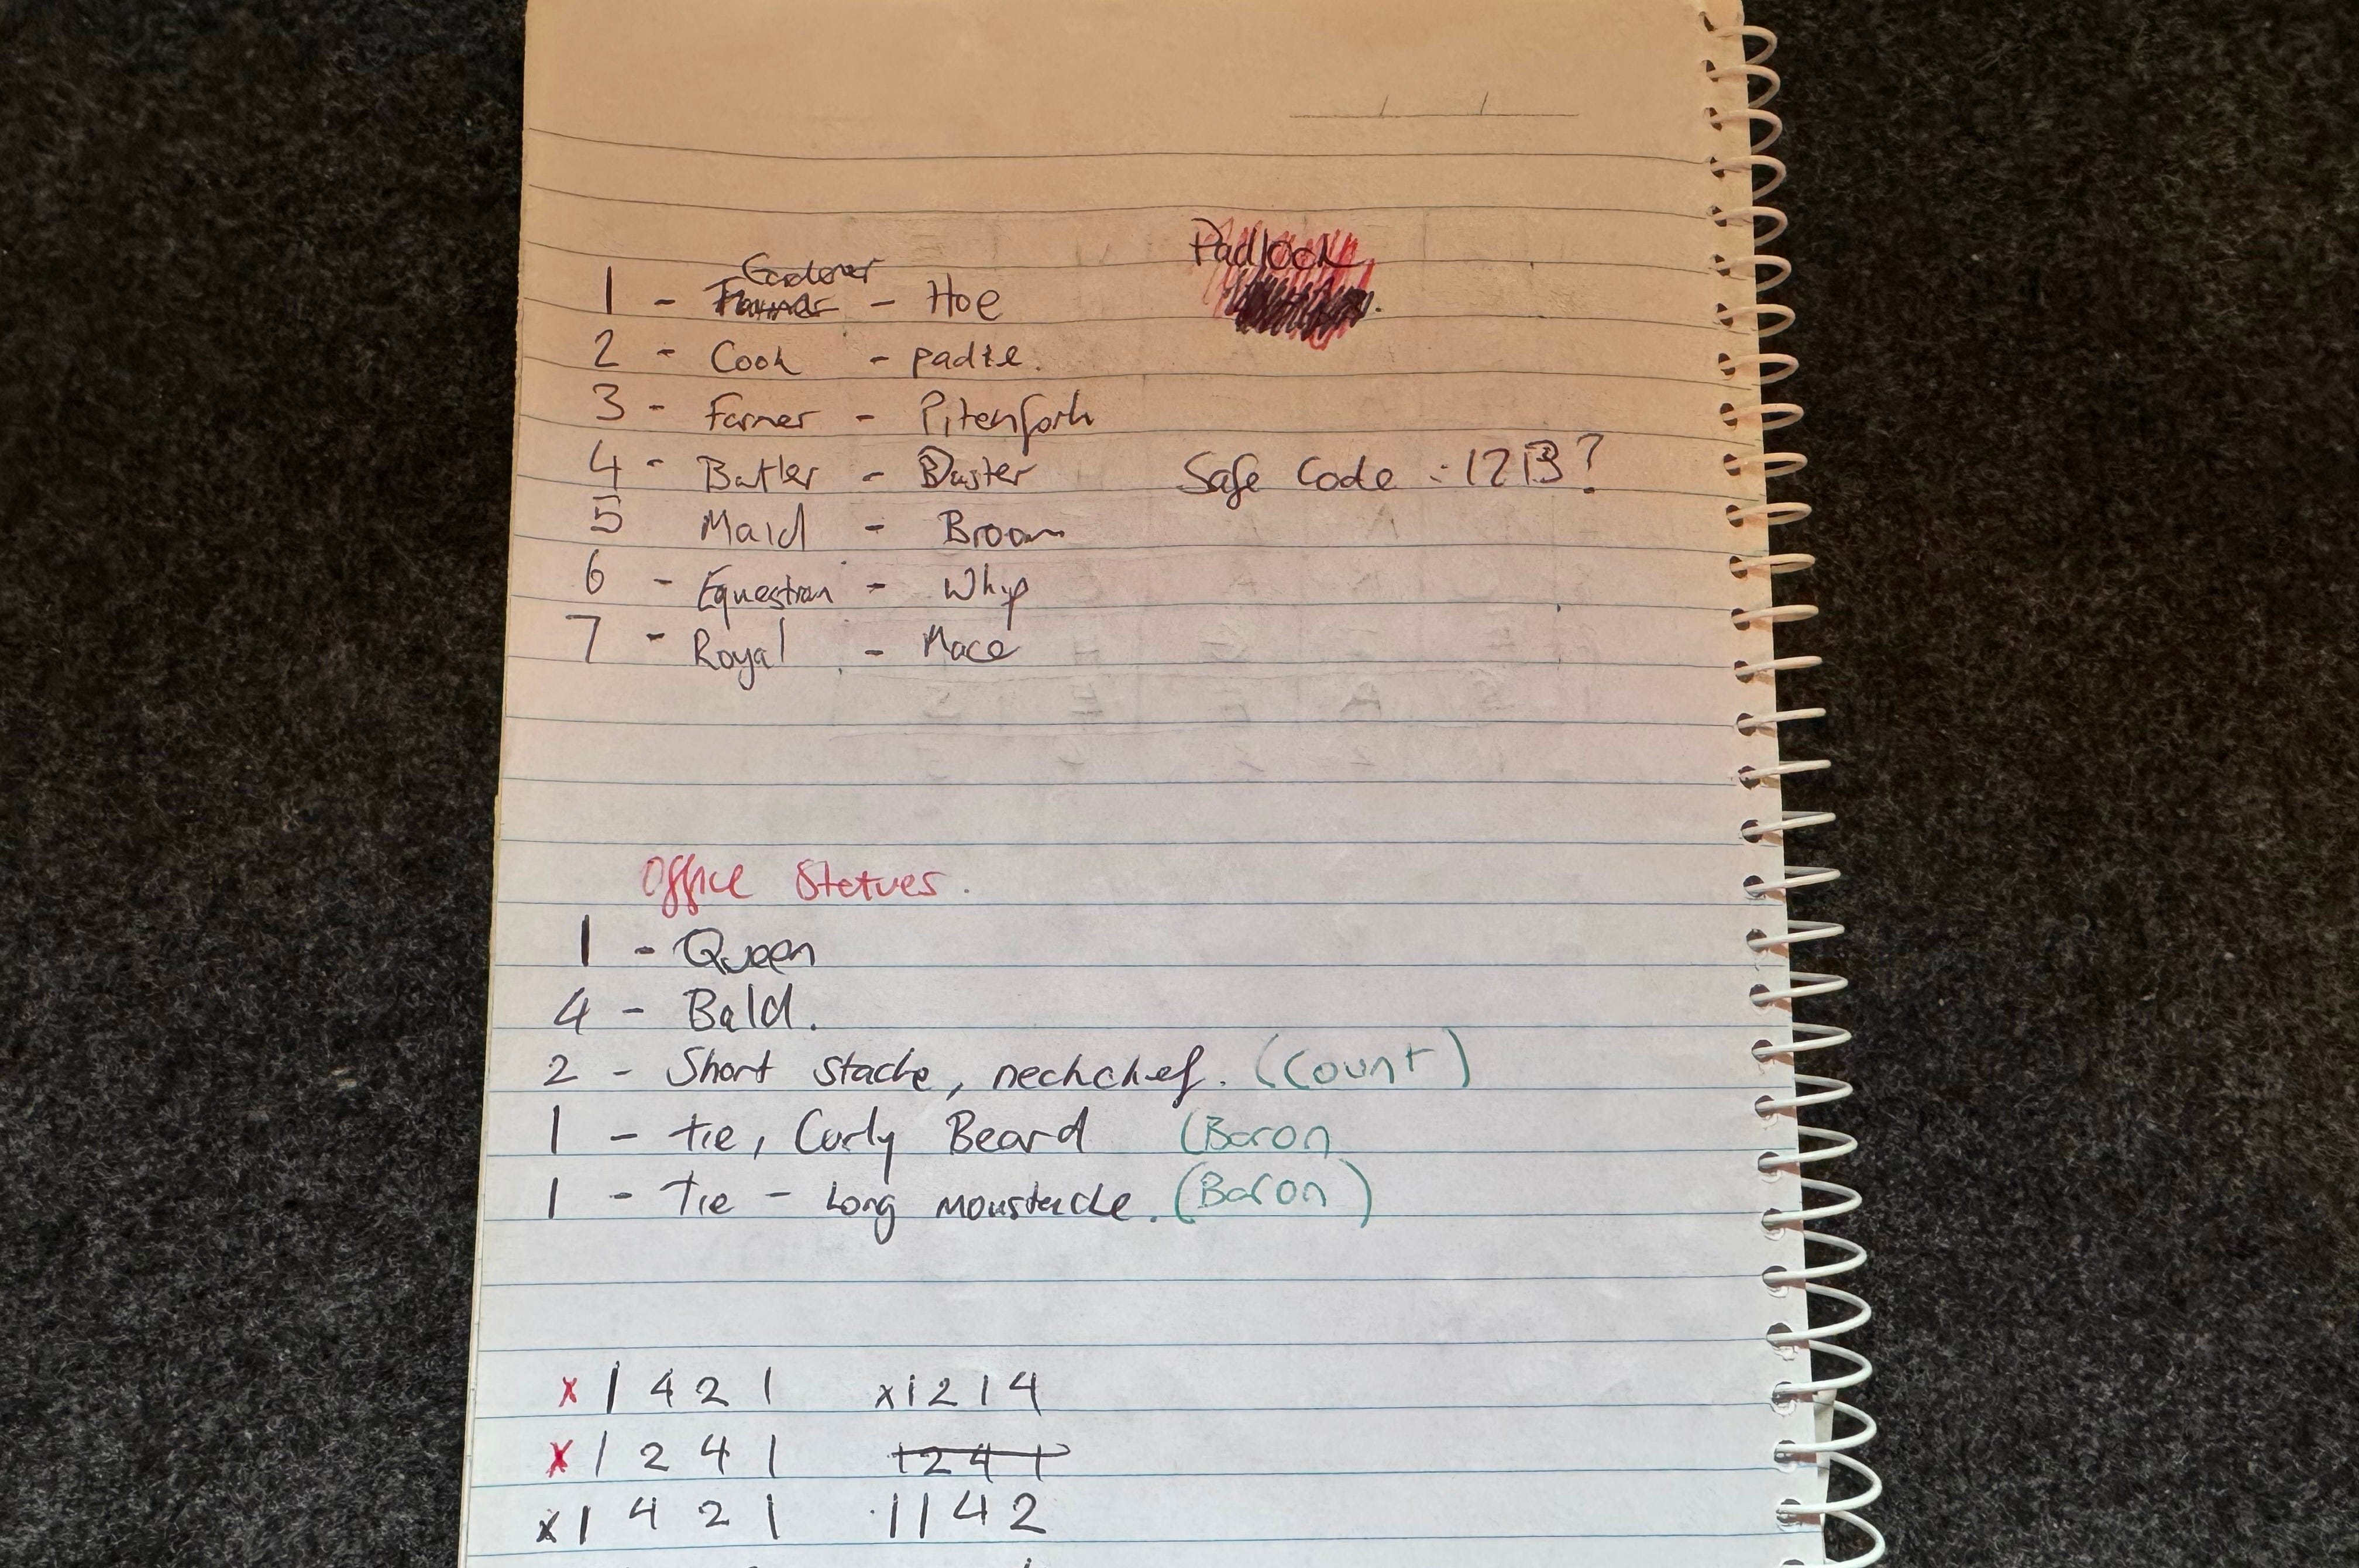 Padlock
Gardener
1 - Farmer - Hoe
2 - Cook - padle.
3 - Farmer - Pitchfork
4 - Butler - Duster
Safe Code : 1213?
5 Maid - Broom
6 - Equestrian - Whip
7 - Royal - Mace
Office Statues.
1 - Queen
4 - Bald.
2 - Short stache, neckchief. (Count)
1 - tie, Curly Beard (Baron
1 - Tie - Long moustache. (Baron)
x 1 4 2 1 x 1 2 1 4
x 1 2 4 1 1 2 4 1
x 1 4 2 1 1 1 4 2